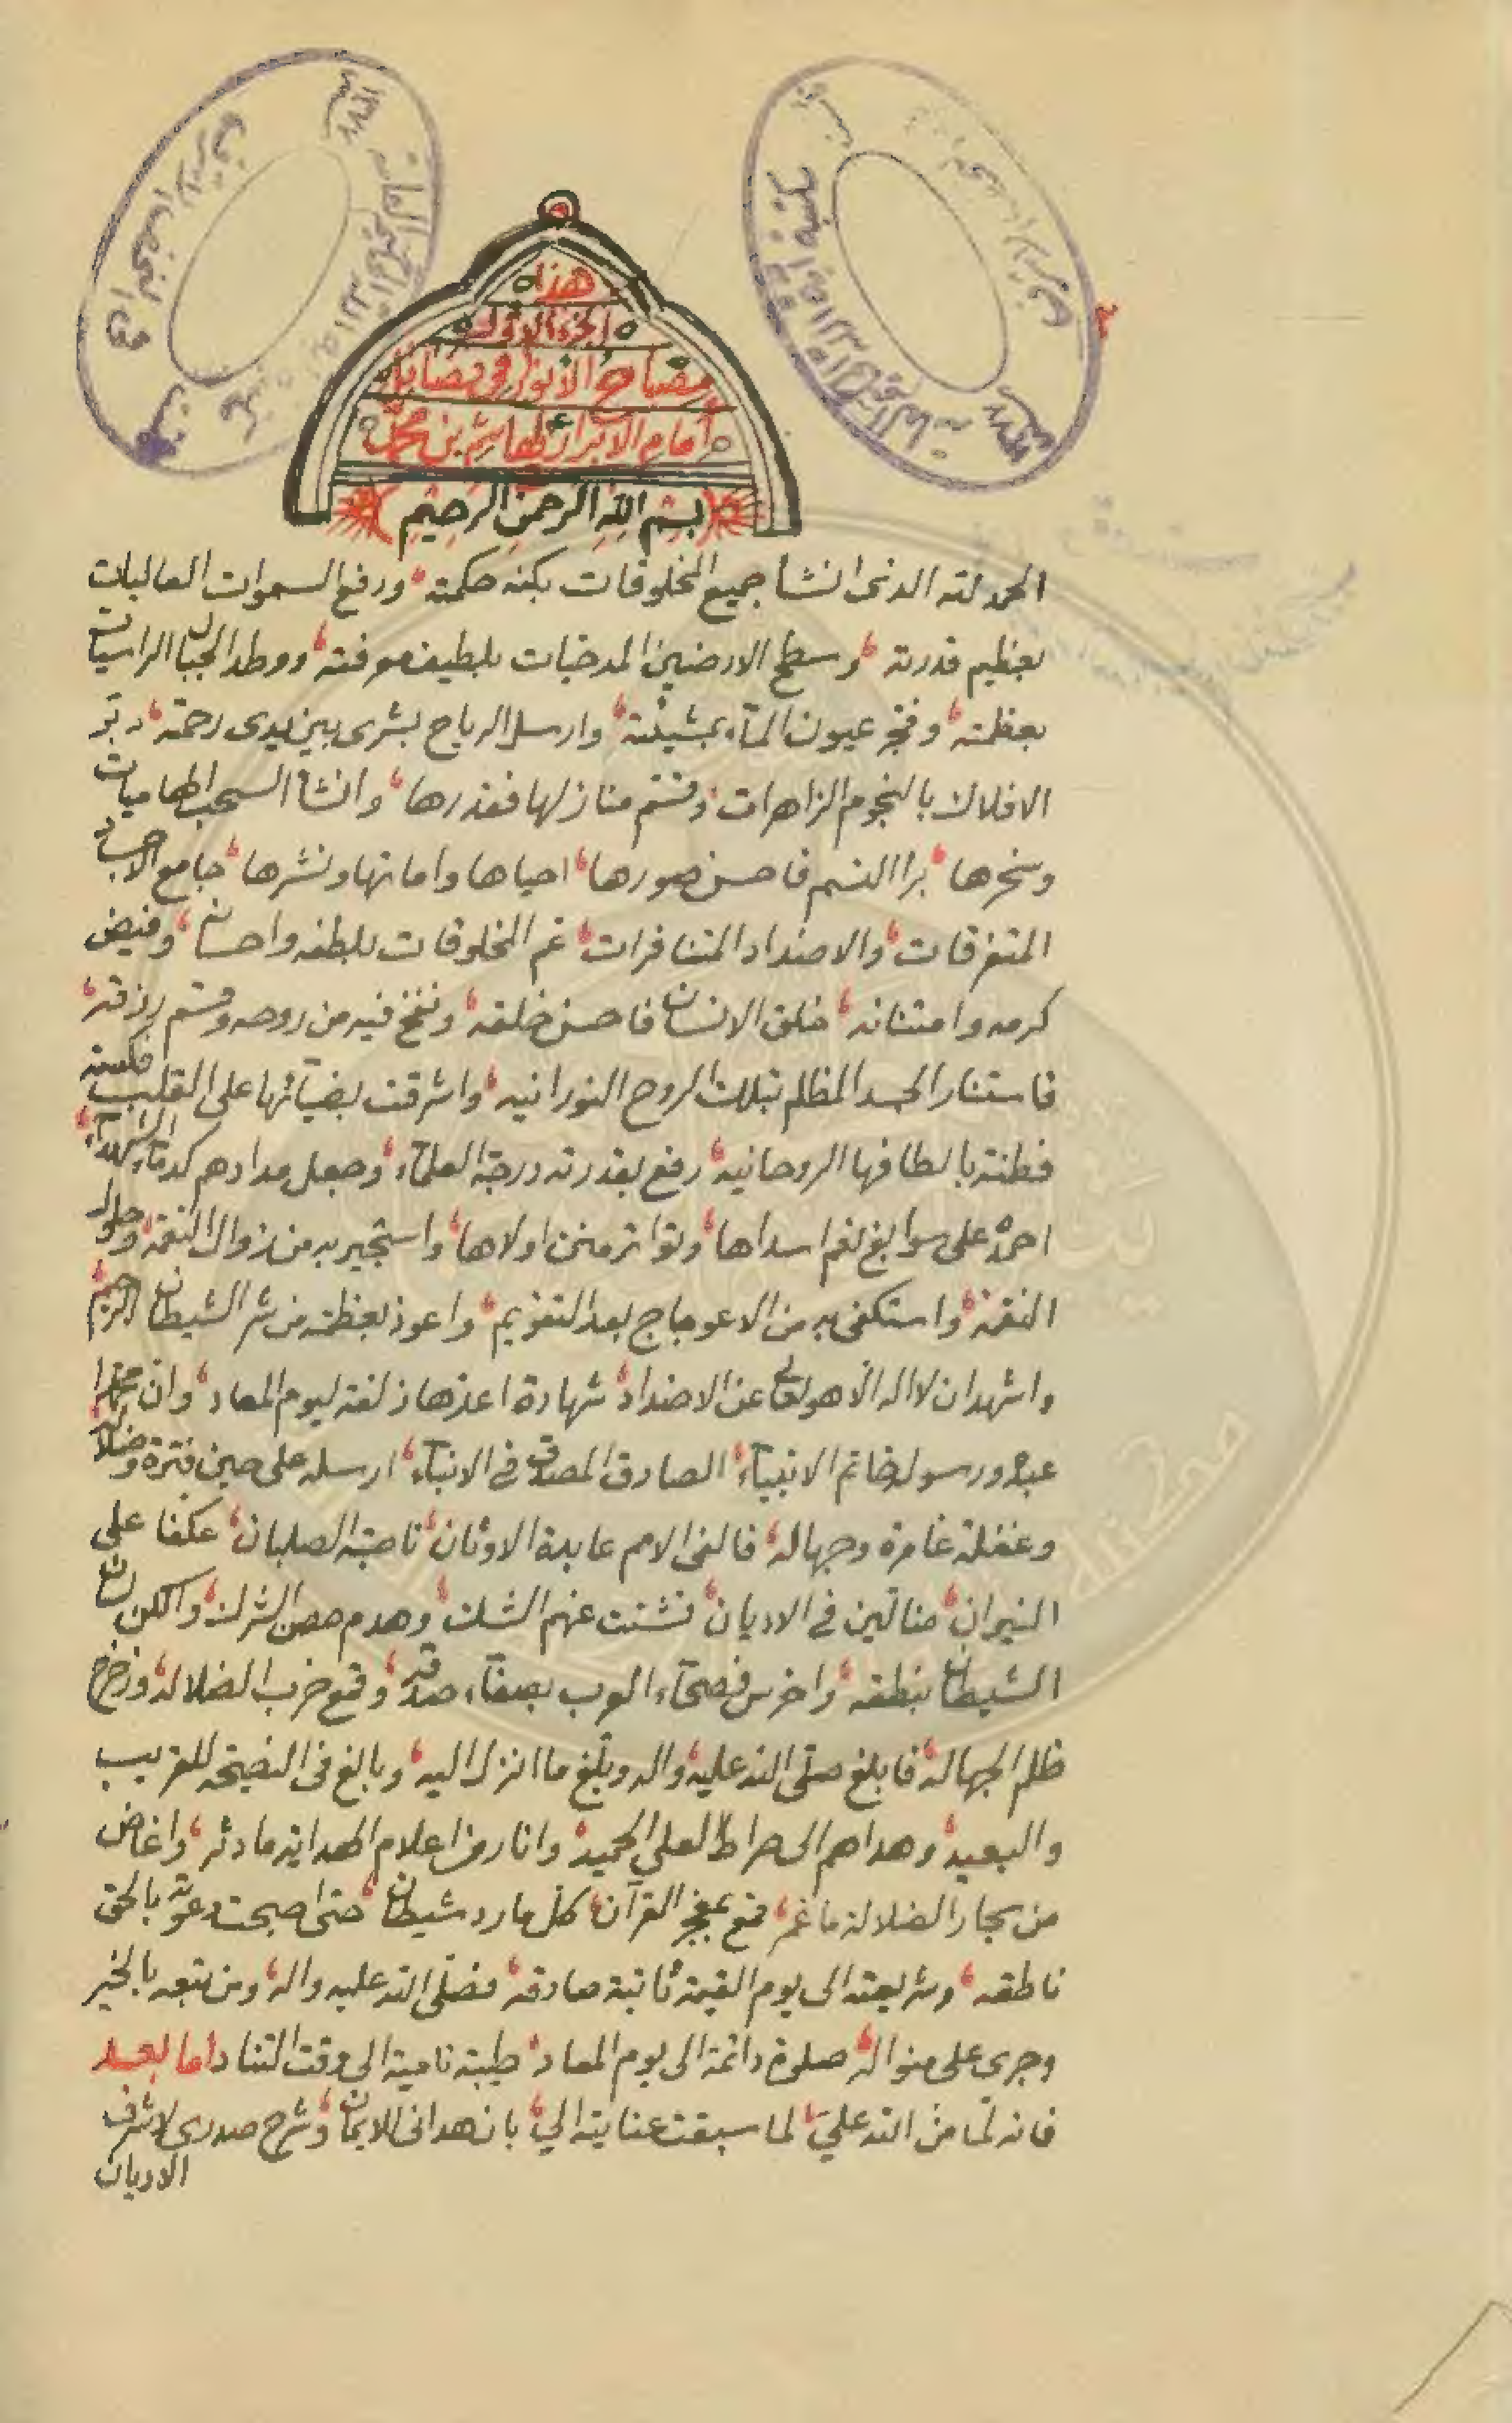 هذا
الجزء الاول
مصباح الانوار في فضائل
امام الابرار لهاشم بن محمد
بسم الله الرحمن الرحيم
الحمد لله الذى انشأ جميع المخلوقات بكنه حكمته، ورفع السموات العاليات
بعظيم قدرته، وسطح الارضين المدحيات بلطيف معرفته، ووطد الجبال الراسيات
بعظمته، وفجر عيون المآء بمشيئته، وارسل الرياح بشرى بين يدى رحمته، دبّر
الافلاك بالنجوم الزاهرات، وقسّم منازلها فقدرها، وانشأ السحب الهاميات
وسخرها، برا النسم فاحسن صورها، احياها واماتها ونشرها، جامع الاجساد
المتفرقات، والاضداد المتنافرات، عم المخلوقات بلطفه واحسانه، وفيض
كرمه وامتنانه، خلق الانسان فاحسن خلقه، ونفخ فيه من روحه وقسم رزقه،
فاستنار الجسد المظلم بتلك الروح النورانيه، واشرقت بضيآئها على القلب فكسته
فطنته بالطافها الروحانيه، رفع بقدرته درجة العلمآء، وجعل مدادهم كدمآء الشهدآء،
احمده على سوابغ نعم اسداها، وتواتر منن اولاها، واستجير به من زوال النعمة، وحلول
النقمة، واستكفى به من الاعوجاج بعد التقويم، واعوذ بعظمته من شر الشيطان الرجيم،
واشهد ان لا اله الّا هو تعالى عن الاضداد، شهادة اعدها زلفة ليوم المعاد، وان محمدا
عبده ورسوله خاتم الانبيآء، الصادق المصدق في الانبآء، ارسله على حين فترة وضلالة
وغفلة غامرة وجهالة، فالفى الامم عابدة الاوثان، ناصبة الصلبان، عكفا على
النيران، ضالّين في الاديان، فشتت عنهم الشك، وهدم حصن الشرك، والكن لسان
الشيطان بنطقه، واخرس فصحآء العرب بصفآء صدقه، وقمع حزب الضلالة، وزحزح
ظلم الجهالة، فابلغ صلّى الله عليه، واله وبلّغ ما انزل اليه، وبالغ فى النصيحة للقريب
والبعيد، وهداهم الى صراط العلي الحميد، وانار من اعلام الهداية ما دثر، واغاض
من بحار الضلالة ما غمر، قمع بمعجز القرآن، كلّ مارد شيطان، حتى اصبحت دعوته بالحق
ناطقه، وشريعته الى يوم القيمة ثابتة صادقه، فصلّى الله عليه واله، ومن تبعه بالخير
وجرى على منواله، صلوة دائمة الى يوم المعاد، طيبة نامية الى وقت التناد اما بعد
فانه لمّا منّ الله عليّ، لما سبقت عنايته اليّ، بان هدانى للايمان، وشرح صدرى لاشرف
الاديان